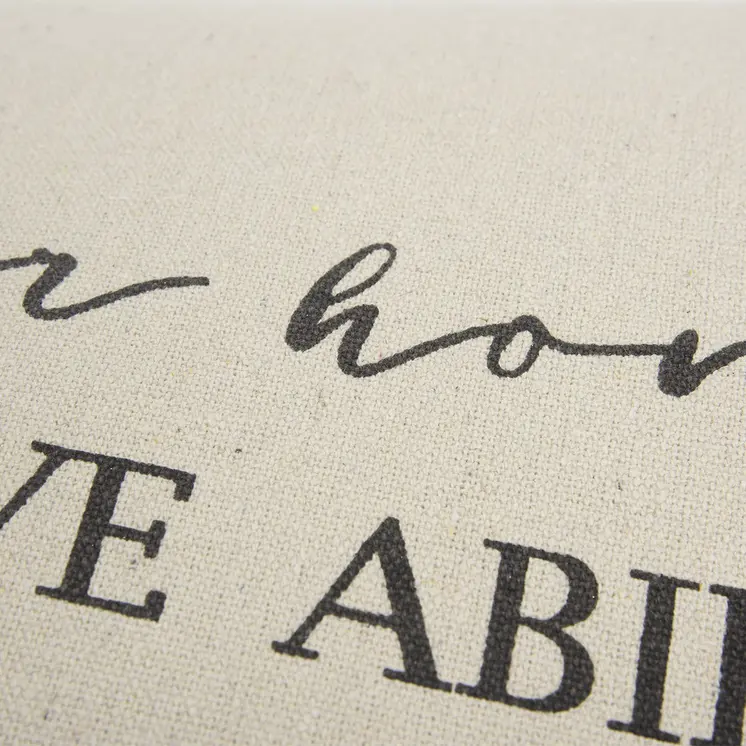 r hom
VE ABI